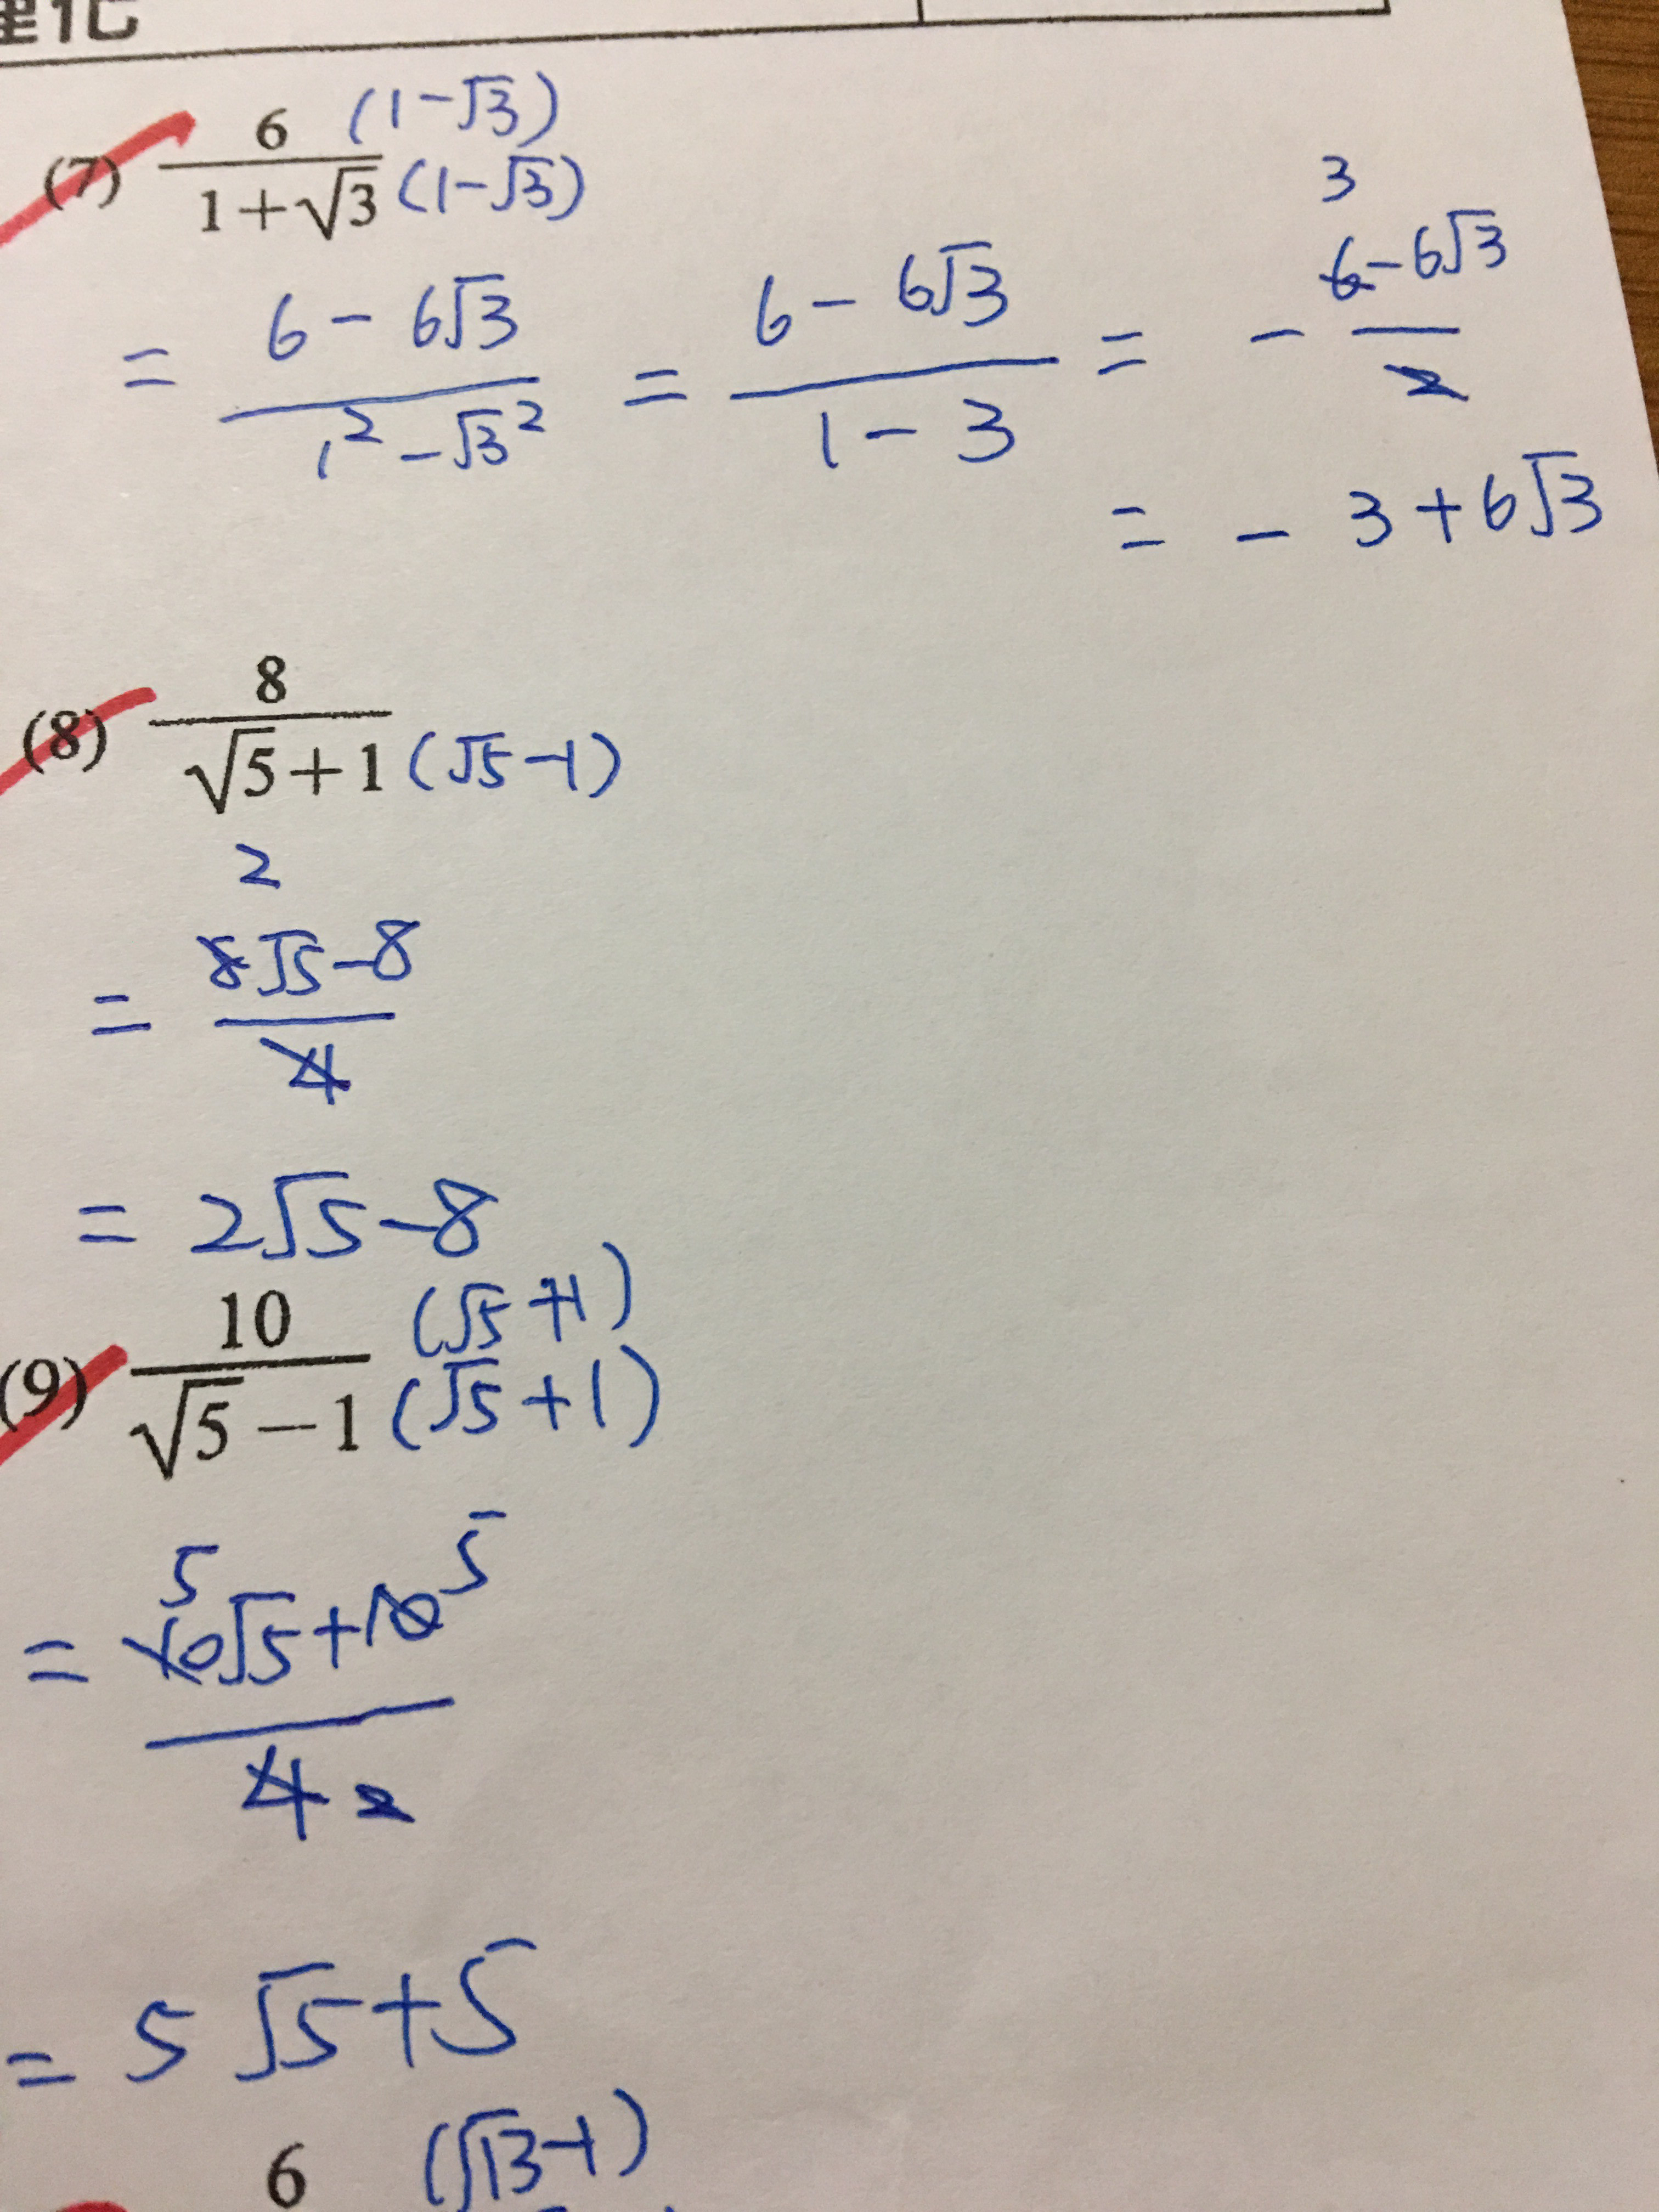 理化
(7) 6 (1-√3)
1+√3 (1-√3)
3
= 6 - 6√3 / 1² - √3² = 6 - 6√3 / 1 - 3 = - 6 - 6√3 / 2
= - 3 + 6√3
(8) 8
√5+1 (√5-1)
2
= 8√5-8 / 4
= 2√5-8
(9) 10 (√5+1)
√5-1 (√5+1)
5 5
= 10√5+10
4 2
= 5√5+5
6 (√13-1)